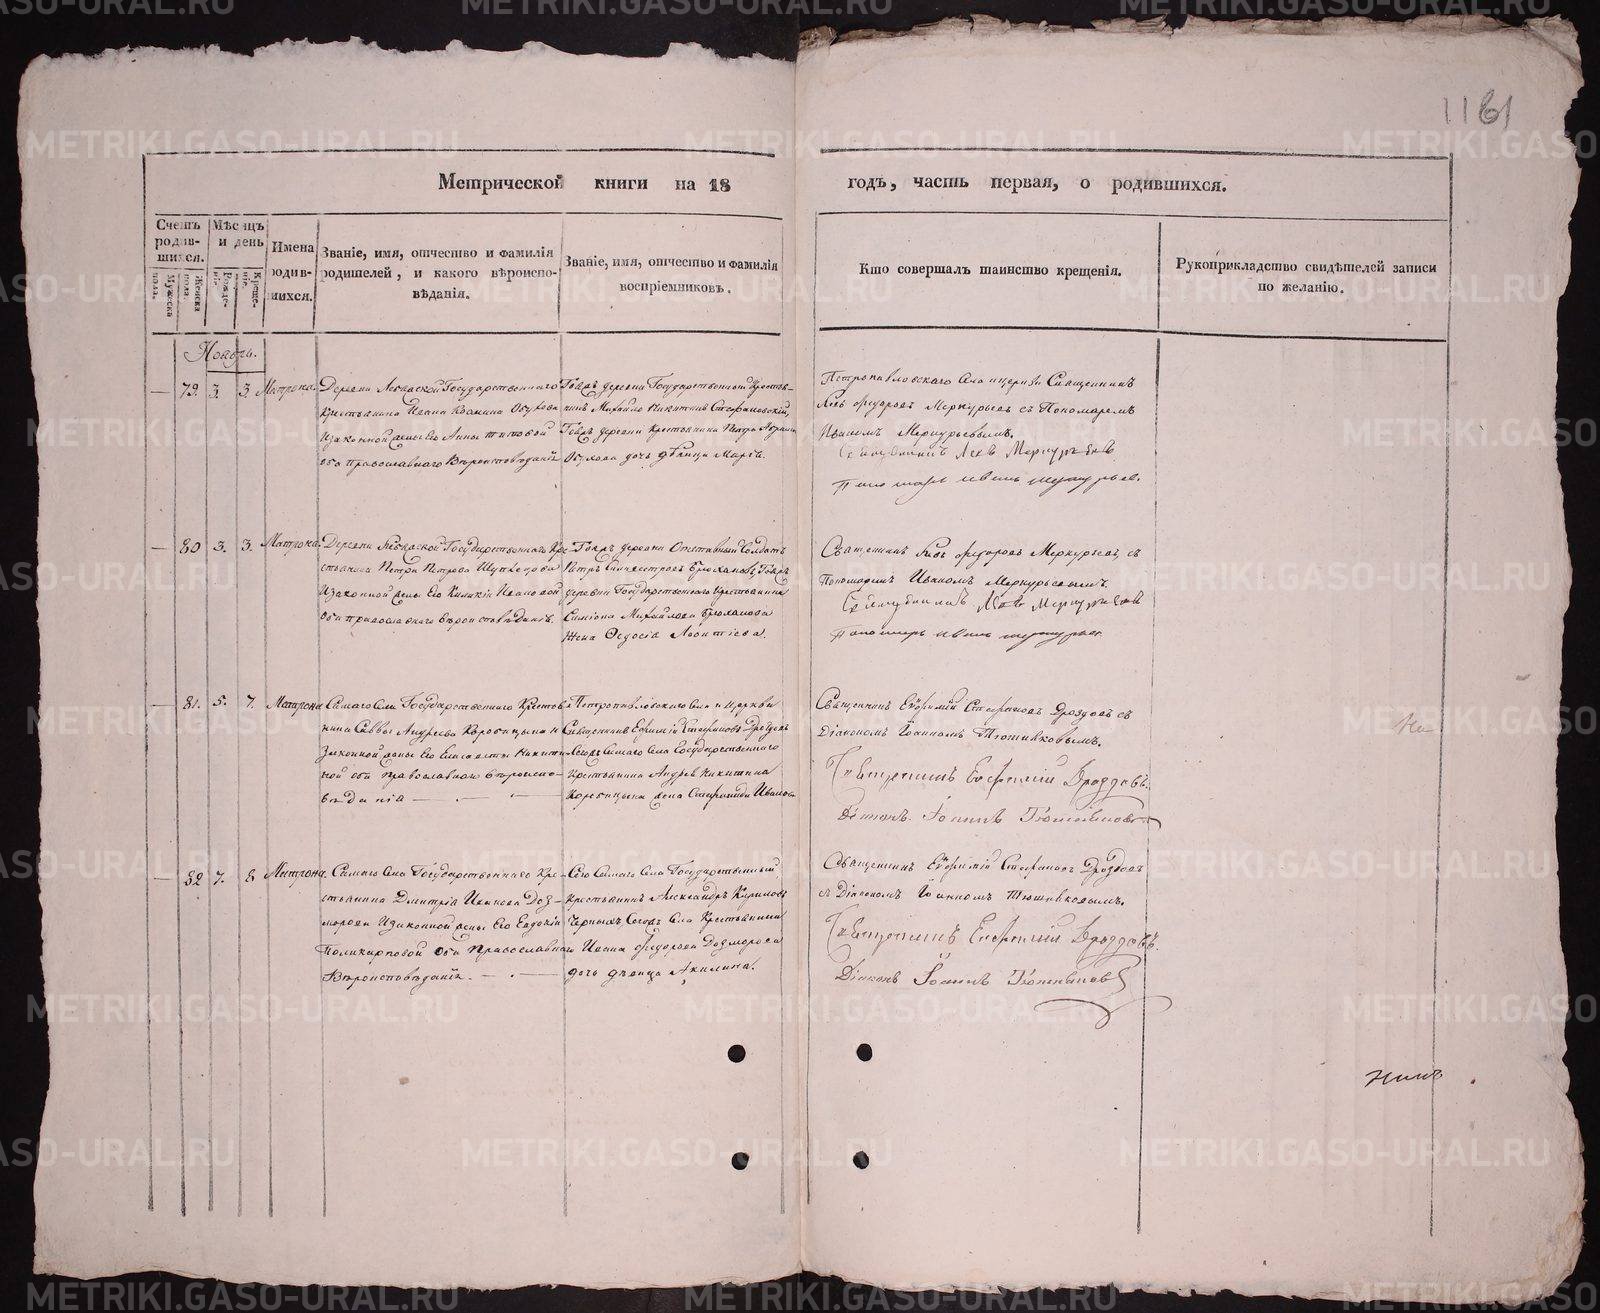 1161
Метрической книги на 18 годъ, часть первая, о родившихся.
Счетъ родившихся.
Мужеска пола.
Женска пола.
Мѣсяцъ и день
Рожденія.
Крещенія.
Имена родившихся.
Званіе, имя, отчество и фамилія родителей, и какого вѣроисповѣданія.
Званіе, имя, отчество и фамилія воспріемниковъ.
Кто совершалъ таинство крещенія.
Рукоприкладство свидѣтелей записи по желанію.
Ноябрь.
— 79. 3. 3. Матрона.
Деревни Государственнаго
крестьянина Ивана Козмина Обухова
и законной жены его Анны Титовой
оба православнаго Вѣроисповѣданія
Тоежъ деревни Государственный крестья-
нинъ Михайло Никитинъ
Тоежъ деревни крестьянина Петра
Обухова дочь дѣвица Марѳа.
Петропавловскаго села церкви Священникъ
Левъ Ѳедоровъ Меркурьевъ съ Пономаремъ
Иваномъ Меркурьевымъ.
Священникъ Левъ Меркурьевъ
Пономарь Иванъ Меркурьев.
— 80 3. 3. Матрона.
Деревни Государственнаго Кре-
стьянина Петра Петрова
и законной жены его Киликіи Ивановой
оба православнаго вѣроисповѣданія.
Тоежъ деревни Отставный Солдатъ
Петръ
деревни Государственнаго крестьянина
Симіона Михайлова
Жена Ѳедосія Леонтіева.
Священникъ Левъ Ѳедоровъ Меркурьевъ съ
Пономаремъ Иваномъ Меркурьевымъ.
Священникъ Левъ Меркурьевъ
Пономарь Иванъ Меркурьев.
81. 5. 7. Матрона
Самаго села Государственнаго Крестья-
нина Саввы Андреева и
Законной жены его Елисаветы Никити-
ной оба православнаго вѣроиспо-
вѣданія —
Петропавловскаго села церкви
Священникъ Евфимій Стефановъ Дроздовъ
самаго села Государственнаго
Крестьянина Андрея Никитина
жена Стефанида Иванов
Священникъ Евфимій Стефановъ Дроздовъ съ
Діакономъ Іоанномъ Тюшняковымъ.
Священникъ Евфимій Дроздовъ.
Діаконъ Іоаннъ Тюшняковъ
— 82 7. 8 Матрона.
Самаго села Государственнаго Кре-
стьянина Дмитрія Иванова Доз-
морова и законной жены его Евдокіи
Поликарповой оба Православнаго
Вѣроисповѣданія. —
Сего самаго села Государственный
крестьянинъ Александръ Кириловъ
Черныхъ Сегожъ села Крестьянина
Ивана Ѳедорова Дозморова
дочь дѣвица Акилина.
Священникъ Евфимій Стефановъ Дроздовъ
съ Діакономъ Іоанномъ Тюшняковымъ.
Священникъ Евфимій Дроздовъ.
Діаконъ Іоаннъ Тюшняковъ
METRIKI.GASO-URAL.RU